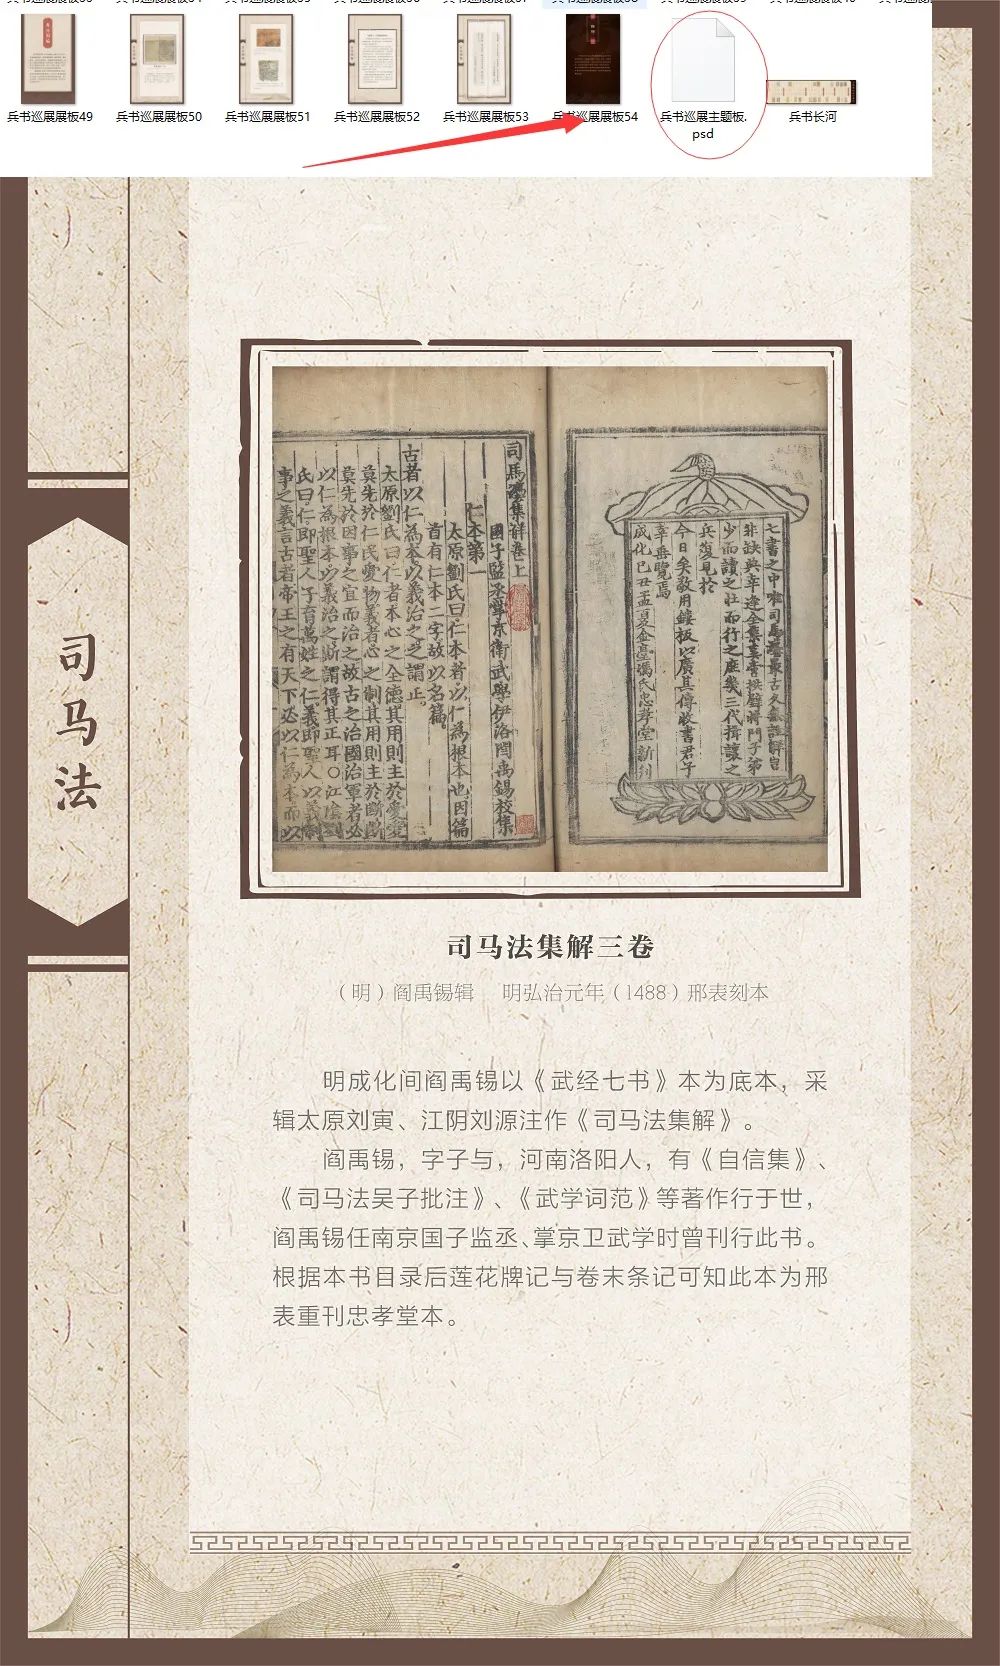 兵书巡展展板49
兵书巡展展板50
兵书巡展展板51
兵书巡展展板52
兵书巡展展板53
兵书巡展展板54
兵书巡展主题板.
psd
兵书长河
司马法
七書之中唯司馬法最古久無註解豈
非缺典幸逢全集 將門子弟
少而讀之壯而行之庶幾三代揖讓之
兵復見於
今日矣敬用鏤板以廣其傳收書君子
幸垂覽焉
成化己丑孟夏金臺馮氏忠孝堂新刊
司馬法集解卷上
國子監丞掌京衛武學伊洛閻禹錫校集
仁本第一
太原劉氏曰仁本者以仁為根本也因篇
首有仁本二字故以名篇
古者以仁為本以義治之之謂正
太原劉氏曰仁者本心之全德其用則主於愛愛
莫先於仁民愛物義者心之制其用則主於斷斷
莫先於因事之宜而治之故古之治國治軍者必
以仁為根本以義治之斯謂得其正耳○江陰劉
氏曰仁即聖人子育萬姓之仁義即聖人以義制
事之義言古者帝王之有天下必以仁為本而以
司马法集解三卷
（明）阎禹锡辑 明弘治元年（1488）邢表刻本
明成化间阎禹锡以《武经七书》本为底本，采
辑太原刘寅、江阴刘源注作《司马法集解》。
阎禹锡，字子与，河南洛阳人，有《自信集》、
《司马法吴子批注》、《武学词范》等著作行于世，
阎禹锡任南京国子监丞、掌京卫武学时曾刊行此书。
根据本书目录后莲花牌记与卷末条记可知此本为邢
表重刊忠孝堂本。